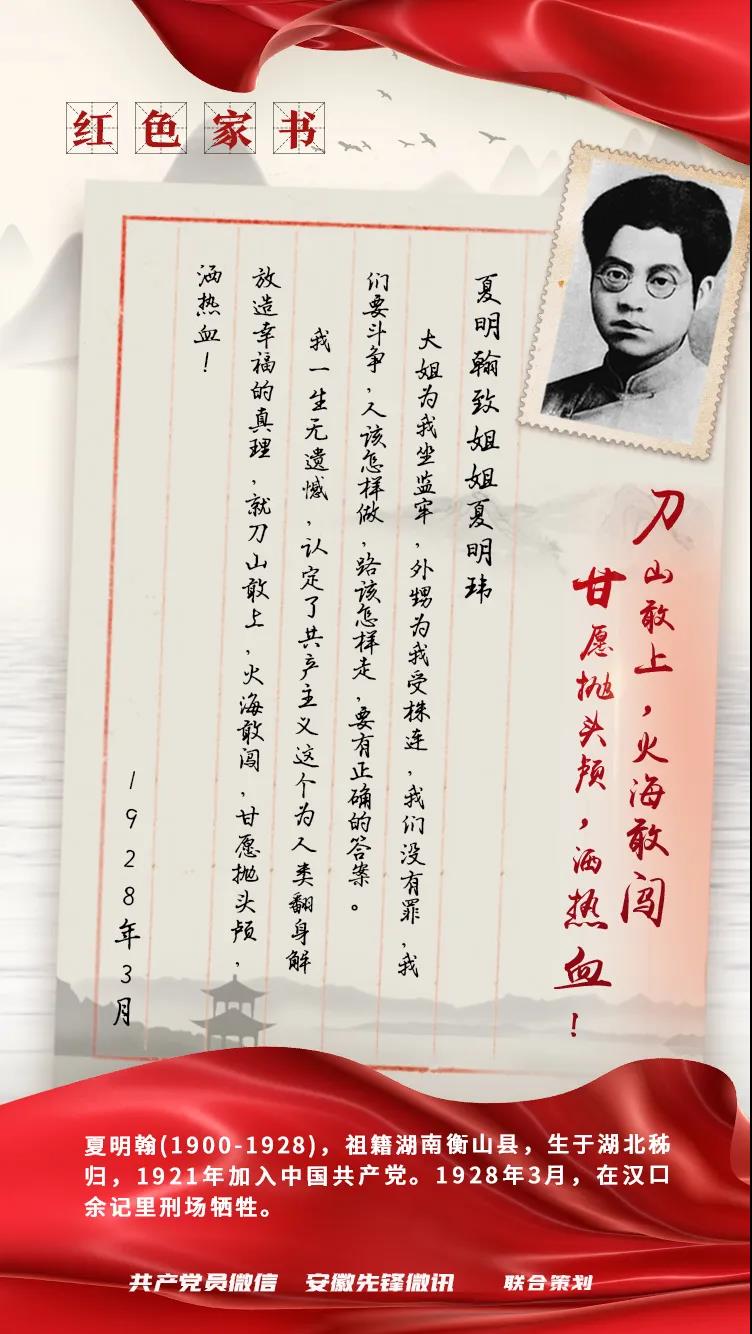 红色家书
刀山敢上，火海敢闯
甘愿抛头颅，洒热血！
夏明翰致姐姐夏明玮
大姐为我坐监牢，外甥为我受株连，我们没有罪，我
们要斗争，人该怎样做，路该怎样走，要有正确的答案。
我一生无遗憾，认定了共产主义这个为人类翻身解
放造幸福的真理，就刀山敢上，火海敢闯，甘愿抛头颅，
洒热血！
1928年3月
夏明翰(1900-1928)，祖籍湖南衡山县，生于湖北秭
归，1921年加入中国共产党。1928年3月，在汉口
余记里刑场牺牲。
共产党员微信 安徽先锋微讯 联合策划